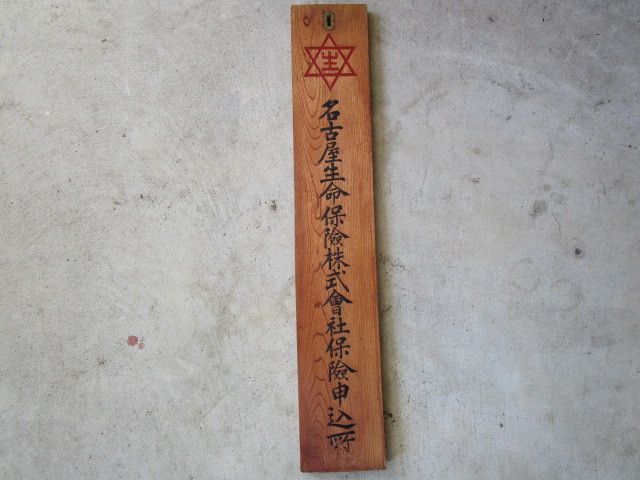 生
名古屋生命保險株式會社保險申込所